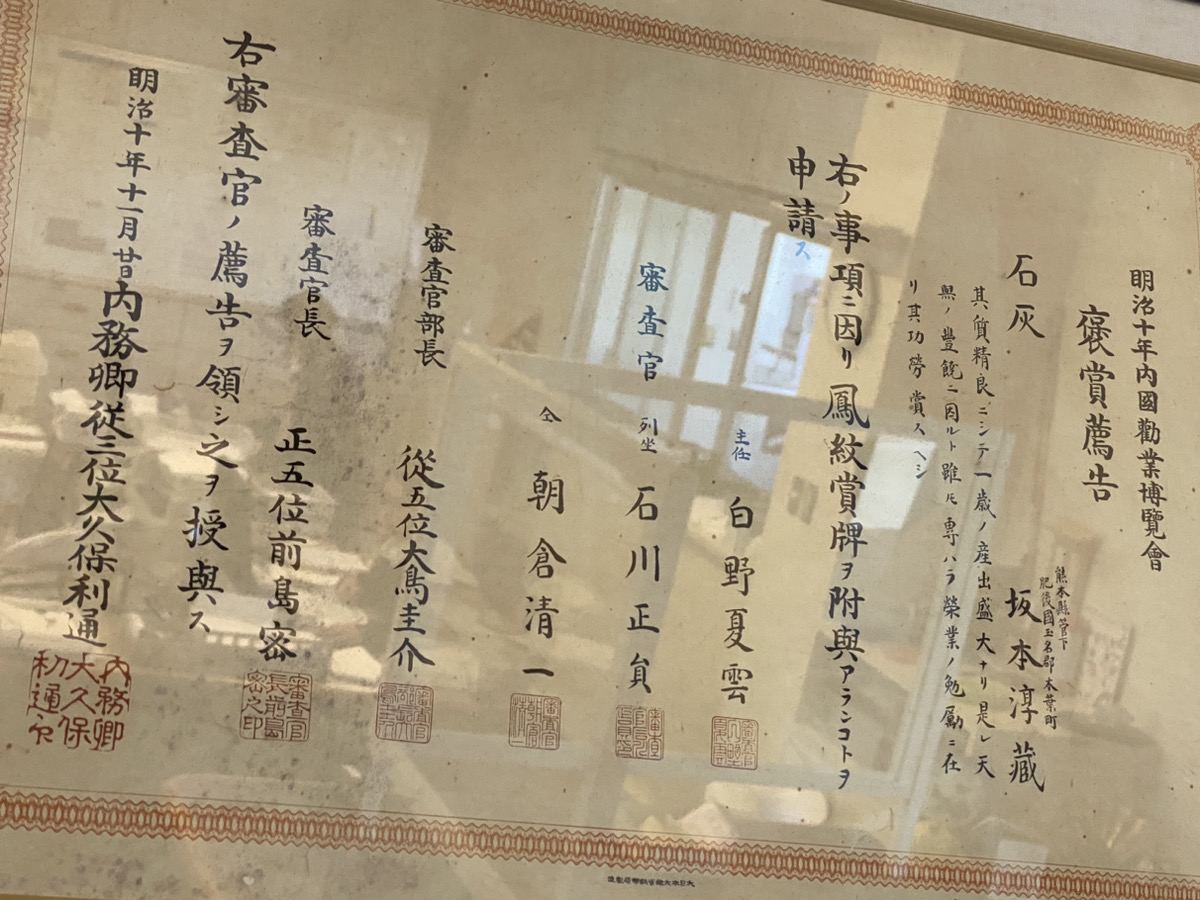 明治十年内國勸業博覽會
褒賞薦告
熊本縣管下
肥後國玉名郡木葉町
石灰 坂本淳藏
其質精良ニシテ一歳ノ産出盛大ナリ是レ天
與ノ豐饒ニ因ルト雖モ専ハラ榮業ノ勉勵ニ在
リ其功勞賞スヘシ
右ノ事項ニ因リ鳳紋賞牌ヲ附與アランコトヲ
申請ス
主任 白野夏雲
審査官 列坐 石川正
仝 朝倉清一
審査官部長 從五位大鳥圭介
審査官長 正五位前島密
右審査官ノ薦告ヲ領シ之ヲ授與ス
明治十年十一月廿日内務卿從三位大久保利通
内務卿
大久保
利通印
審査官
長前島
密之印